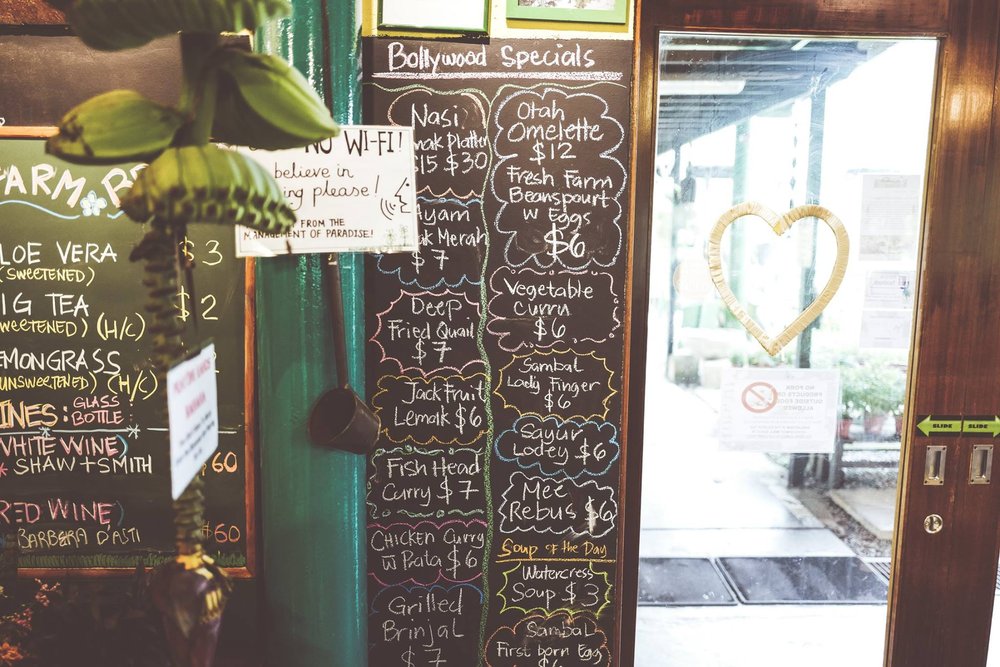 Bollywood Specials
Nasi
Platter
$15 $30
Ayam
Merah
$7
Deep
Fried Quail
$7
Jack Fruit
Lemak $6
Fish Head
Curry $7
Chicken Curry
w Pata $6
Grilled
Brinjal
$7
Otah
Omelette
$12
Fresh Farm
Beansprout
w Eggs
$6
Vegetable
Curry
$6
Sambal
Lady Finger
$6
Sayur
Lodey $6
Mee
Rebus $6
Soup of the Day
Watercress
Soup $3
Sambal
First born Egg
$6
NO WI-FI!
believe in
please!
FROM THE
MANAGEMENT OF PARADISE!
FARM
ALOE VERA $3
(SWEETENED)
TEA $2
(SWEETENED) (H/C)
LEMONGRASS
(UNSWEETENED) (H/C)
WINES: GLASS
BOTTLE:
(WHITE WINE)
* SHAW + SMITH $60
RED WINE)
BARBERA D'ASTI $60
NO PORK
PRODUCTS OR
OUTSIDE FOOD
ALLOWED
SLIDE
SLIDE